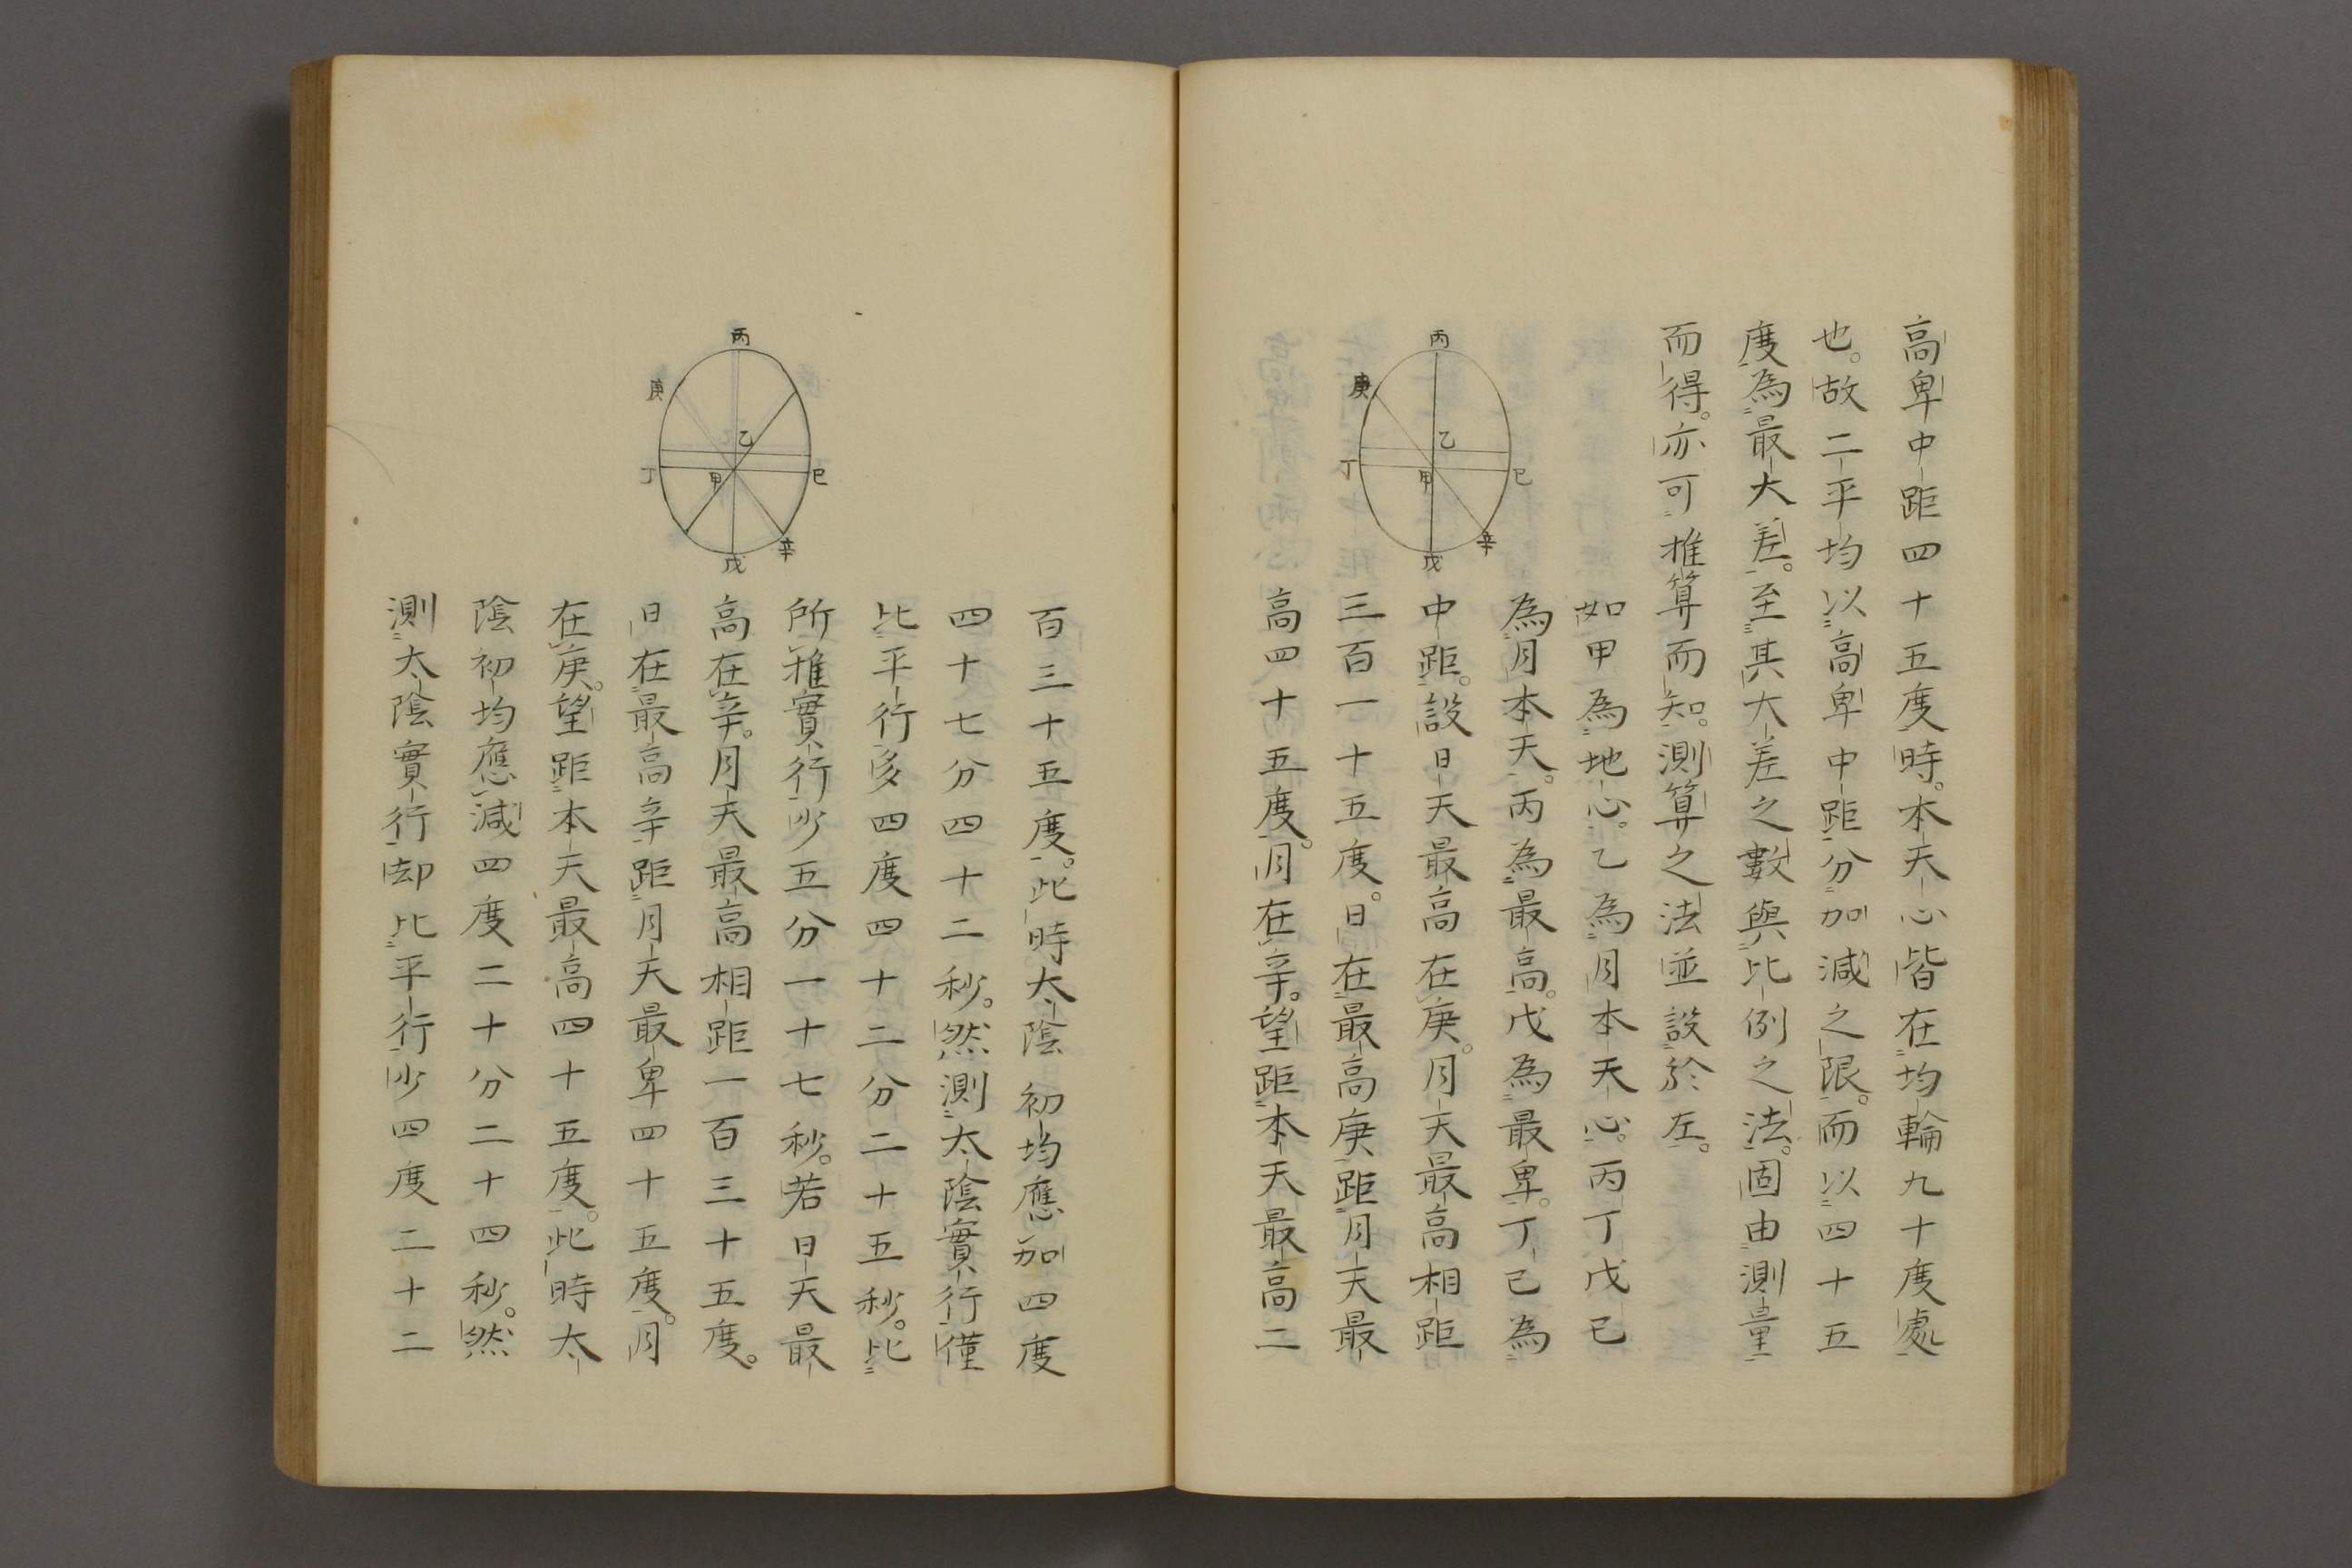 高卑中距四十五度時。本天心皆在均輪九十度處
也。故二平均以高卑中距分加減之限。而以四十五
度為最大差。至其大差之數與比例之法。固由測量
而得。亦可推算而知。測算之法並設於左。
丙
庚
乙
丁
甲
巳
辛
戊
如甲為地心。乙為月本天心。丙丁戊巳
為月本天。丙為最高。戊為最卑。丁巳為
中距。設日天最高在庚。月天最高相距
三百一十五度。日在最高庚距月天最
高四十五度。月在辛。望距本天最高二
丙
庚
乙
丁
甲
巳
辛
戊
百三十五度。此時太陰初均應加四度
四十七分四十二秒。然測太陰實行僅
比平行多四度四十二分二十五秒。比
所推實行少五分一十七秒。若日天最
高在辛。月天最高相距一百三十五度。
日在最高辛距月天最卑四十五度。月
在庚。望距本天最高四十五度。此時太
陰初均應減四度二十分二十四秒。然
測太陰實行却比平行少四度二十二